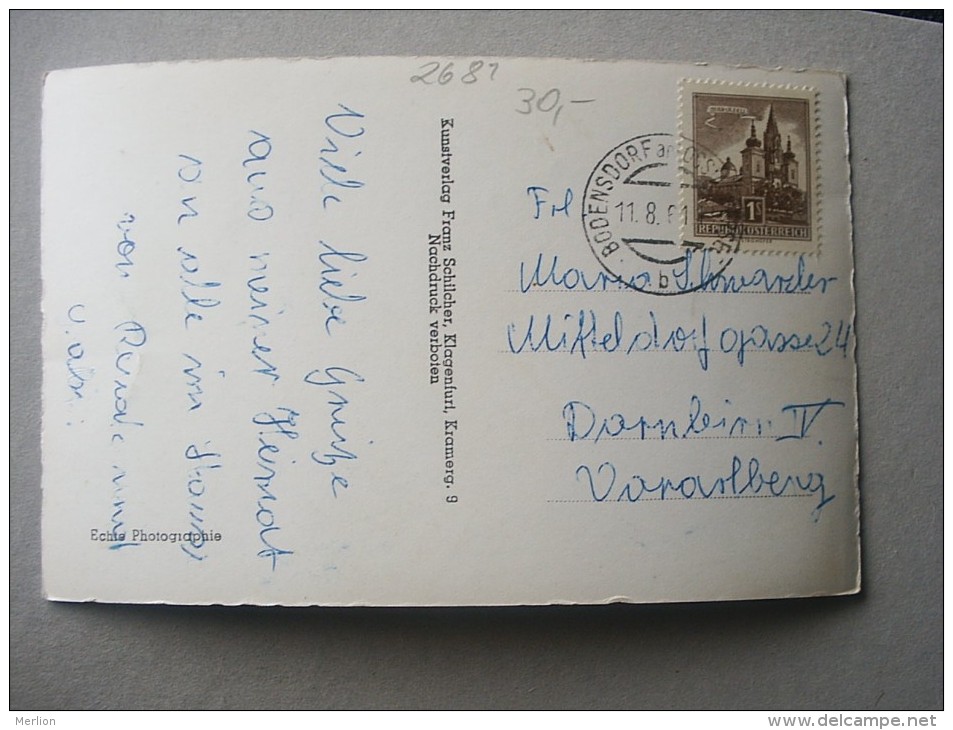 2681
30,-
Viele liebe Grüße
aus meiner Heimat
an alle im Hause
von
Kunstverlag Franz Schilcher, Klagenfurt, Kramerg. 9
Nachdruck verboten
Echte Photographie
BODENSDORF am
11.8.61
b
MARIAZELL
1S
REPUBLIK ÖSTERREICH
Frl
Maria Schwarder
Mitteldorfgasse 24
Dornbirn IV.
Vorarlberg
Merlion
http://www.delcampe.net